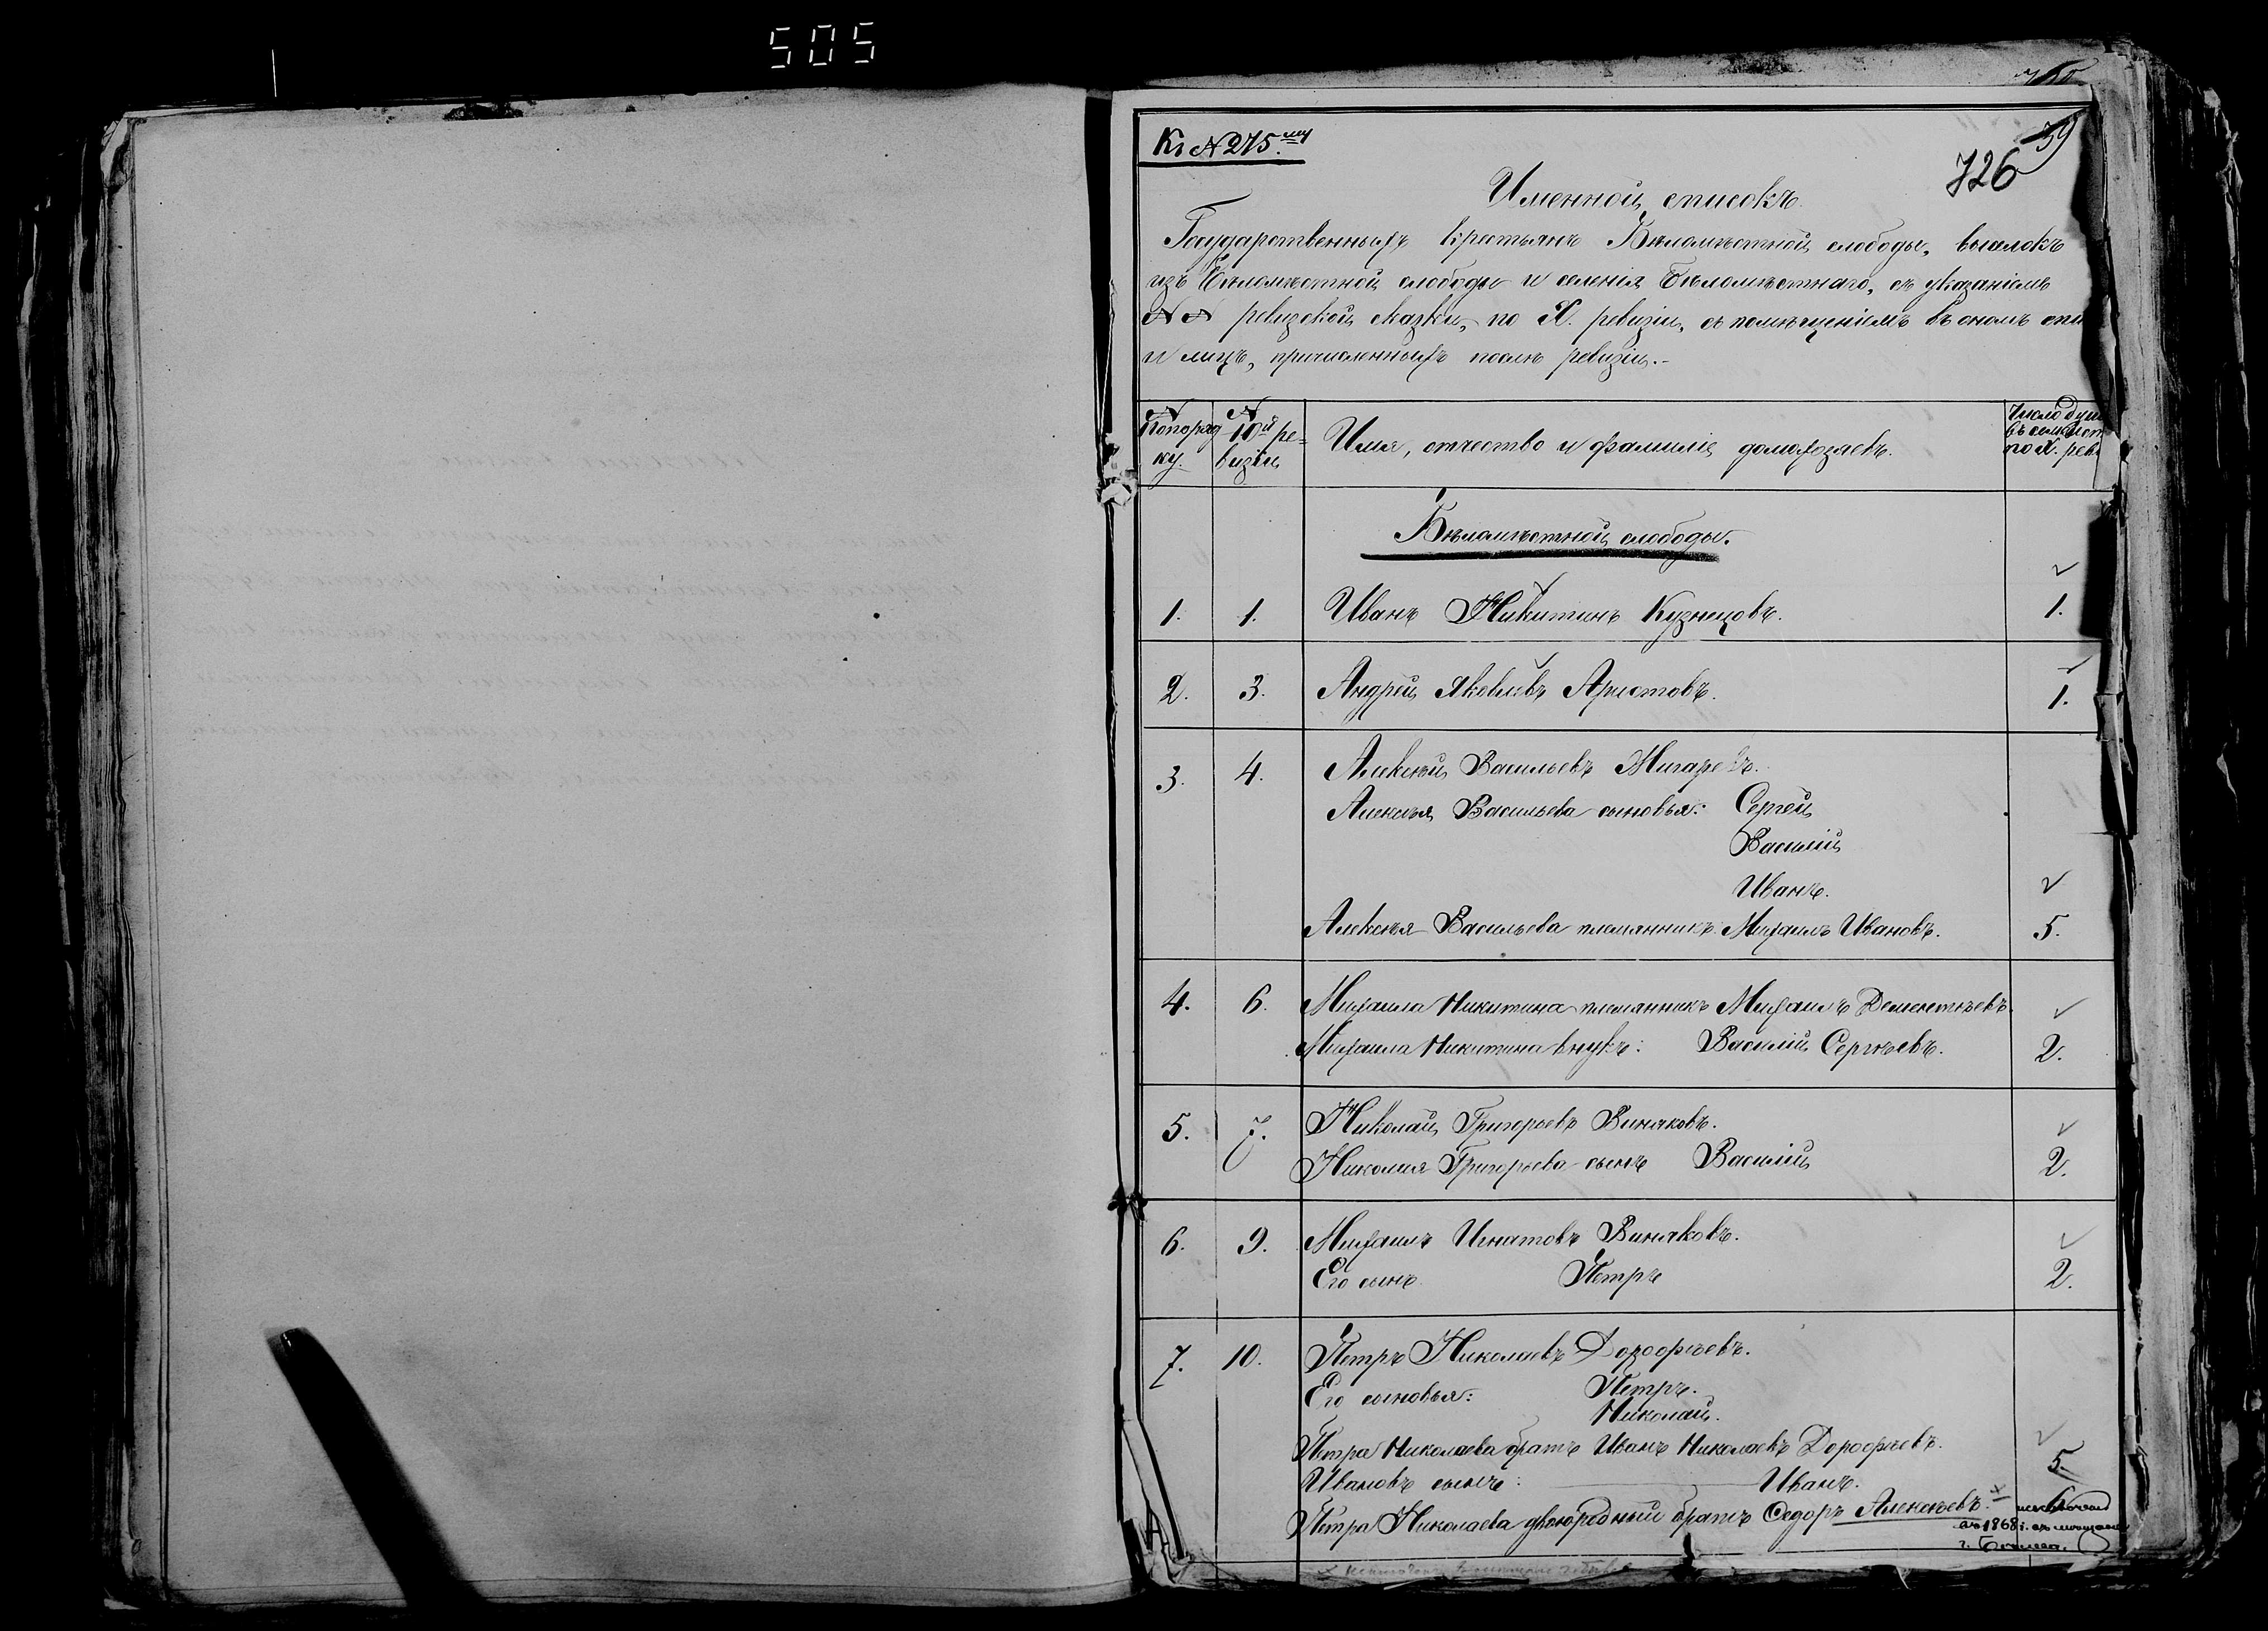 505
Къ № 275му
39
726
Именной списокъ
Государственныхъ крестьянъ Бѣломѣстной слободы, выселокъ
изъ Бѣломѣстной слободы и селенія Бѣломѣстнаго, съ указаніемъ
№№ ревизской сказки, по X. ревизіи, съ помѣщеніемъ въ ономъ спи
и лицъ, причисленныхъ послѣ ревизіи.-
№ По поряд ку.
№ 10й ре- визіи
Имя, отчество и фамилія домохозяевъ.
Число душ въ семействѣ по X. реви
Бѣломѣстной слободы.
1. 1. Иванъ Никитинъ Кузнецовъ. 1.
2. 3. Андрей Яковлевъ Аристовъ. 1.
3. 4. Алексѣй Васильевъ Жигаревъ.
Алексѣя Васильева сыновья: Сергѣй
Василій
Иванъ.
Алексѣя Васильева племянникъ Михаилъ Ивановъ. 5.
4. 6. Михаила Никитина племянникъ Михаилъ Дементьевъ
Михаила Никитина внукъ: Василій Сергѣевъ. 2.
5. 7. Николай Григорьевъ Виняковъ.
Николая Григорьева сынъ Василій 2.
6. 9. Михаилъ Игнатовъ Виняковъ.
Его сынъ Петръ 2.
7. 10. Петръ Николаевъ Дорофѣевъ.
Его сыновья: Петръ.
Николай.
Петра Николаева братъ Иванъ Николаевъ Дорофѣевъ. 5.
Ивановъ сынъ: Иванъ.
Петра Николаева двоюродный братъ Ѳедоръ Алексѣевъ. 6
въ 1868 г. въ мѣщане